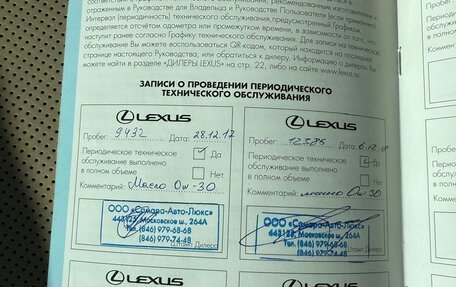 соответс
в Руководстве для Владельца и Руководстве Пользователя (если применимо
Интервал (периодичность) технического обслуживания, предусмотренный Графиком,
определяется отсчётом одометра или промежутком времени, в зависимости от того, что
наступит ранее согласно Графику технического обслуживания. Для записи на техническое
обслуживание Вы можете воспользоваться QR-кодом, который находится на последней
странице настоящего Руководства, или обратиться к дилеру. Информацию о дилерах Вы
можете найти в разделе «ДИЛЕРЫ LEXUS» на стр. 22, либо на сайте www.lexus.ru.
ЗАПИСИ О ПРОВЕДЕНИИ ПЕРИОДИЧЕСКОГО
ТЕХНИЧЕСКОГО ОБСЛУЖИВАНИЯ
LEXUS
Пробег: 9432 Дата: 28.12.17
Периодическое техническое
обслуживание выполнено Да
в полном объеме Нет
Комментарий: Масло 0w-30
ООО «Самара-Авто-Люкс»
443125, Московское ш., 264А
Тел. (846) 979-68-68
(846) 979-74-48
LEXUS
Пробег: Дата: 6.12.18
Периодическое техническое
обслуживание выполнено Да
в полном объеме Нет
Комментарий: масло 0w 30
ООО «Самара-Авто-Люкс»
443125, Московское ш., 264А
Тел. (846) 979-68-68
(846) 979-74-48
Штамп Дилера
LEXUS
LEXUS